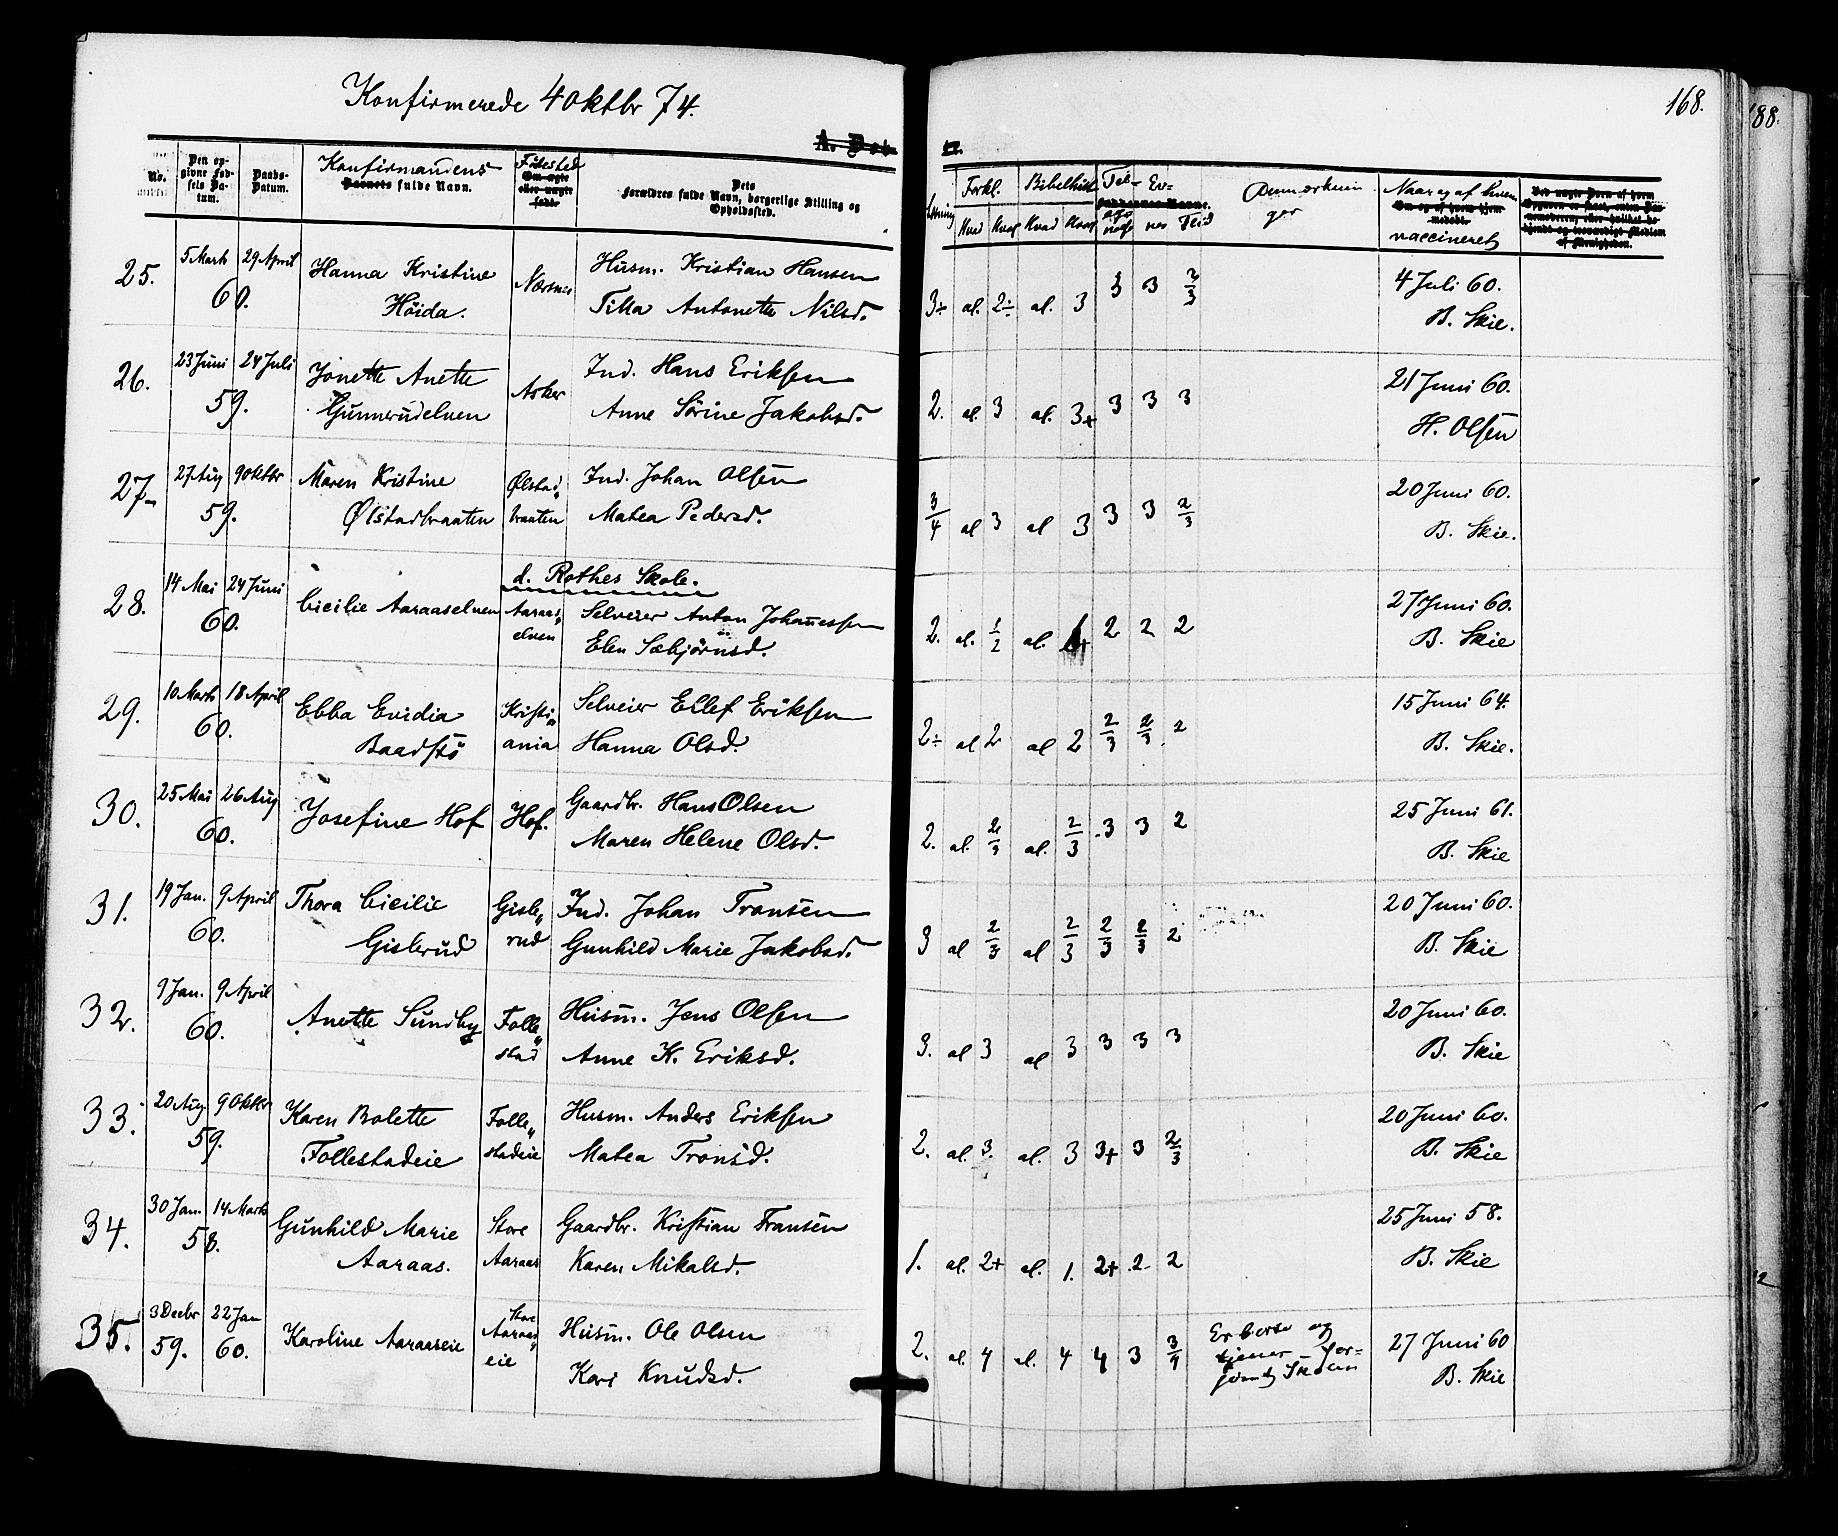 Konfirmerede 4 Oktbr 74.
168.
188.
A. Døb te.
No. Den opgivne Fødsels Datum. Daabs-Datum. Konfirmandens Barnets fulde Navn. Fødested Om ægte eller uægte født. Dets Forældres fulde Navn, borgerlige Stilling og Opholdssted.
Læsning Forkl. Bibelhist. Evnes Flid Naar og af hvem vaccineret
Hvad Hvor Hvad Hvor
25. 5 Marts 29 April 60. Hanna Kristine Høida. Nærsnes Husm. Kristian Hansen
Tilla Antonette Nilsd. 3÷ al. 2÷ al. 3 3 3 2/3 4 Juli 60.
B. Skie.
26. 23 Juni 24 Juli 59. Jonette Anette Gunnerudelven Asker Ind. Hans Eriksen
Anne Sørine Jakobsd. 2. al. 3 al. 3+ 3 3 3 21 Juni 60.
H. Olsen
27 27 Aug 9 Oktbr 59. Maren Kristine Ølstadbraaten Ølstad„ braaten Ind. Johan Olsen
Matea Pedersd. 3/4 al 3 al 3 3 3 2/3 20 Juni 60.
B. Skie.
d. Rothes Skole.
28. 14 Mai 24 Juni 60. Cicilie Aaraaselven Aaraas„ elven Selveier Anton Johannessen
Elen Sæbjørnsd. 2. al. 1/2 al. 2 2 2 27 Juni 60.
B. Skie
29. 10 Marts 18 April 60. Ebba Evidia Baadstø Kristi„ ania Selveier Ellef Eriksen
Hanna Olsd. 2÷ al 2 al 2 2/3 2/3 2 15 Juni 64.
B. Skie.
30. 25 Mai 26 Aug 60. Josefine Hof Hof. Gaardbr. Hans Olsen
Maren Helene Olsd. 2. al. 2/3 al. 2/3 3 3 2 25 Juni 61.
B. Skie
31. 19 Jan. 9 April 60. Thora Cicilie Gislerud Gisle„ rud Ind. Johan Transen
Gunhild Marie Jakobsd. 3 al 2/3 al 2/3 2/3 2/3 2 20 Juni 60.
B. Skie
32. 9 Jan. 9 April 60. Anette Sundby Folle„ stad Husm. Jens Olsen
Anne K. Eriksd. 3. al 3 al 3 3 3 3 20 Juni 60.
B. Skie
33. 20 Aug 9 Oktbr 59. Karen Bolette Follestadeie Folle„ stadeie Husm. Anders Eriksen
Matea Tronsd. 2. al. 3. al. 3 3+ 3 2/3 20 Juni 60.
B. Skie
34. 30 Jan. 14 Marts 58. Gunhild Marie Aaraas. Store Aaraas Gaardbr. Kristian Fransen
Karen Mikalsd. 1. al. 2+ al. 1. 2+ 2 2 25 Juni 58.
B. Skie
35. 3 Decbr 59. 22 Jan 60. Karoline Aaraaseie Store Aaraas„ eie Husm. Ole Olsen
Kari Knudsd. 2. al. 4 al. 4 4 3 3/4 27 Juni 60
B. Skie